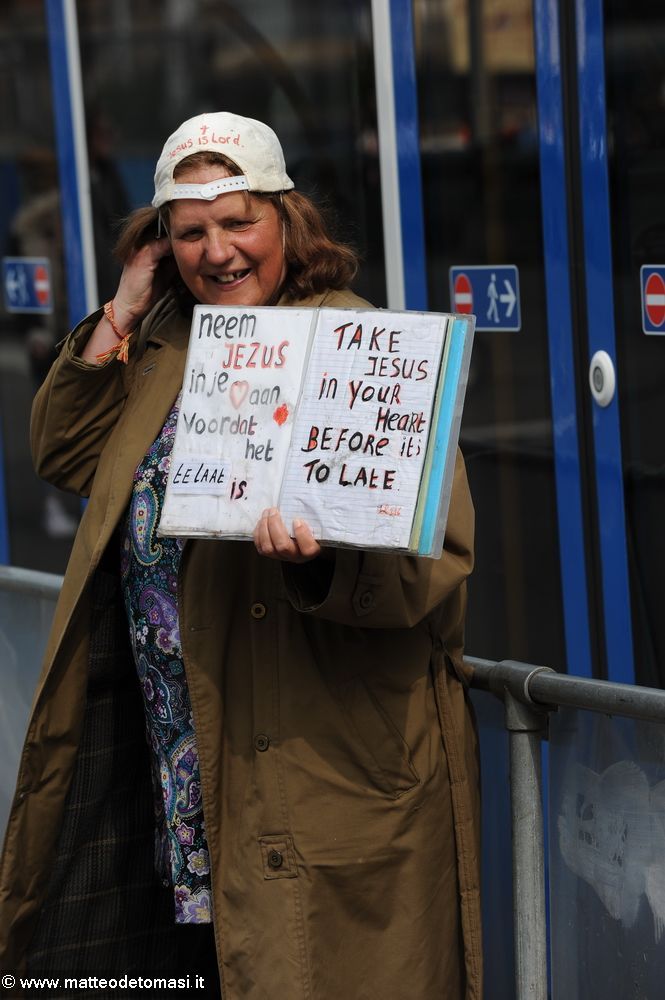 Jesus is Lord.
neem
JEZUS
in je aan
voordat
het
EE LAAT
is.
TAKE
JESUS
in YOUR
Heart
BEFORE it;
TO LATE.
© www.matteodetomasi.it